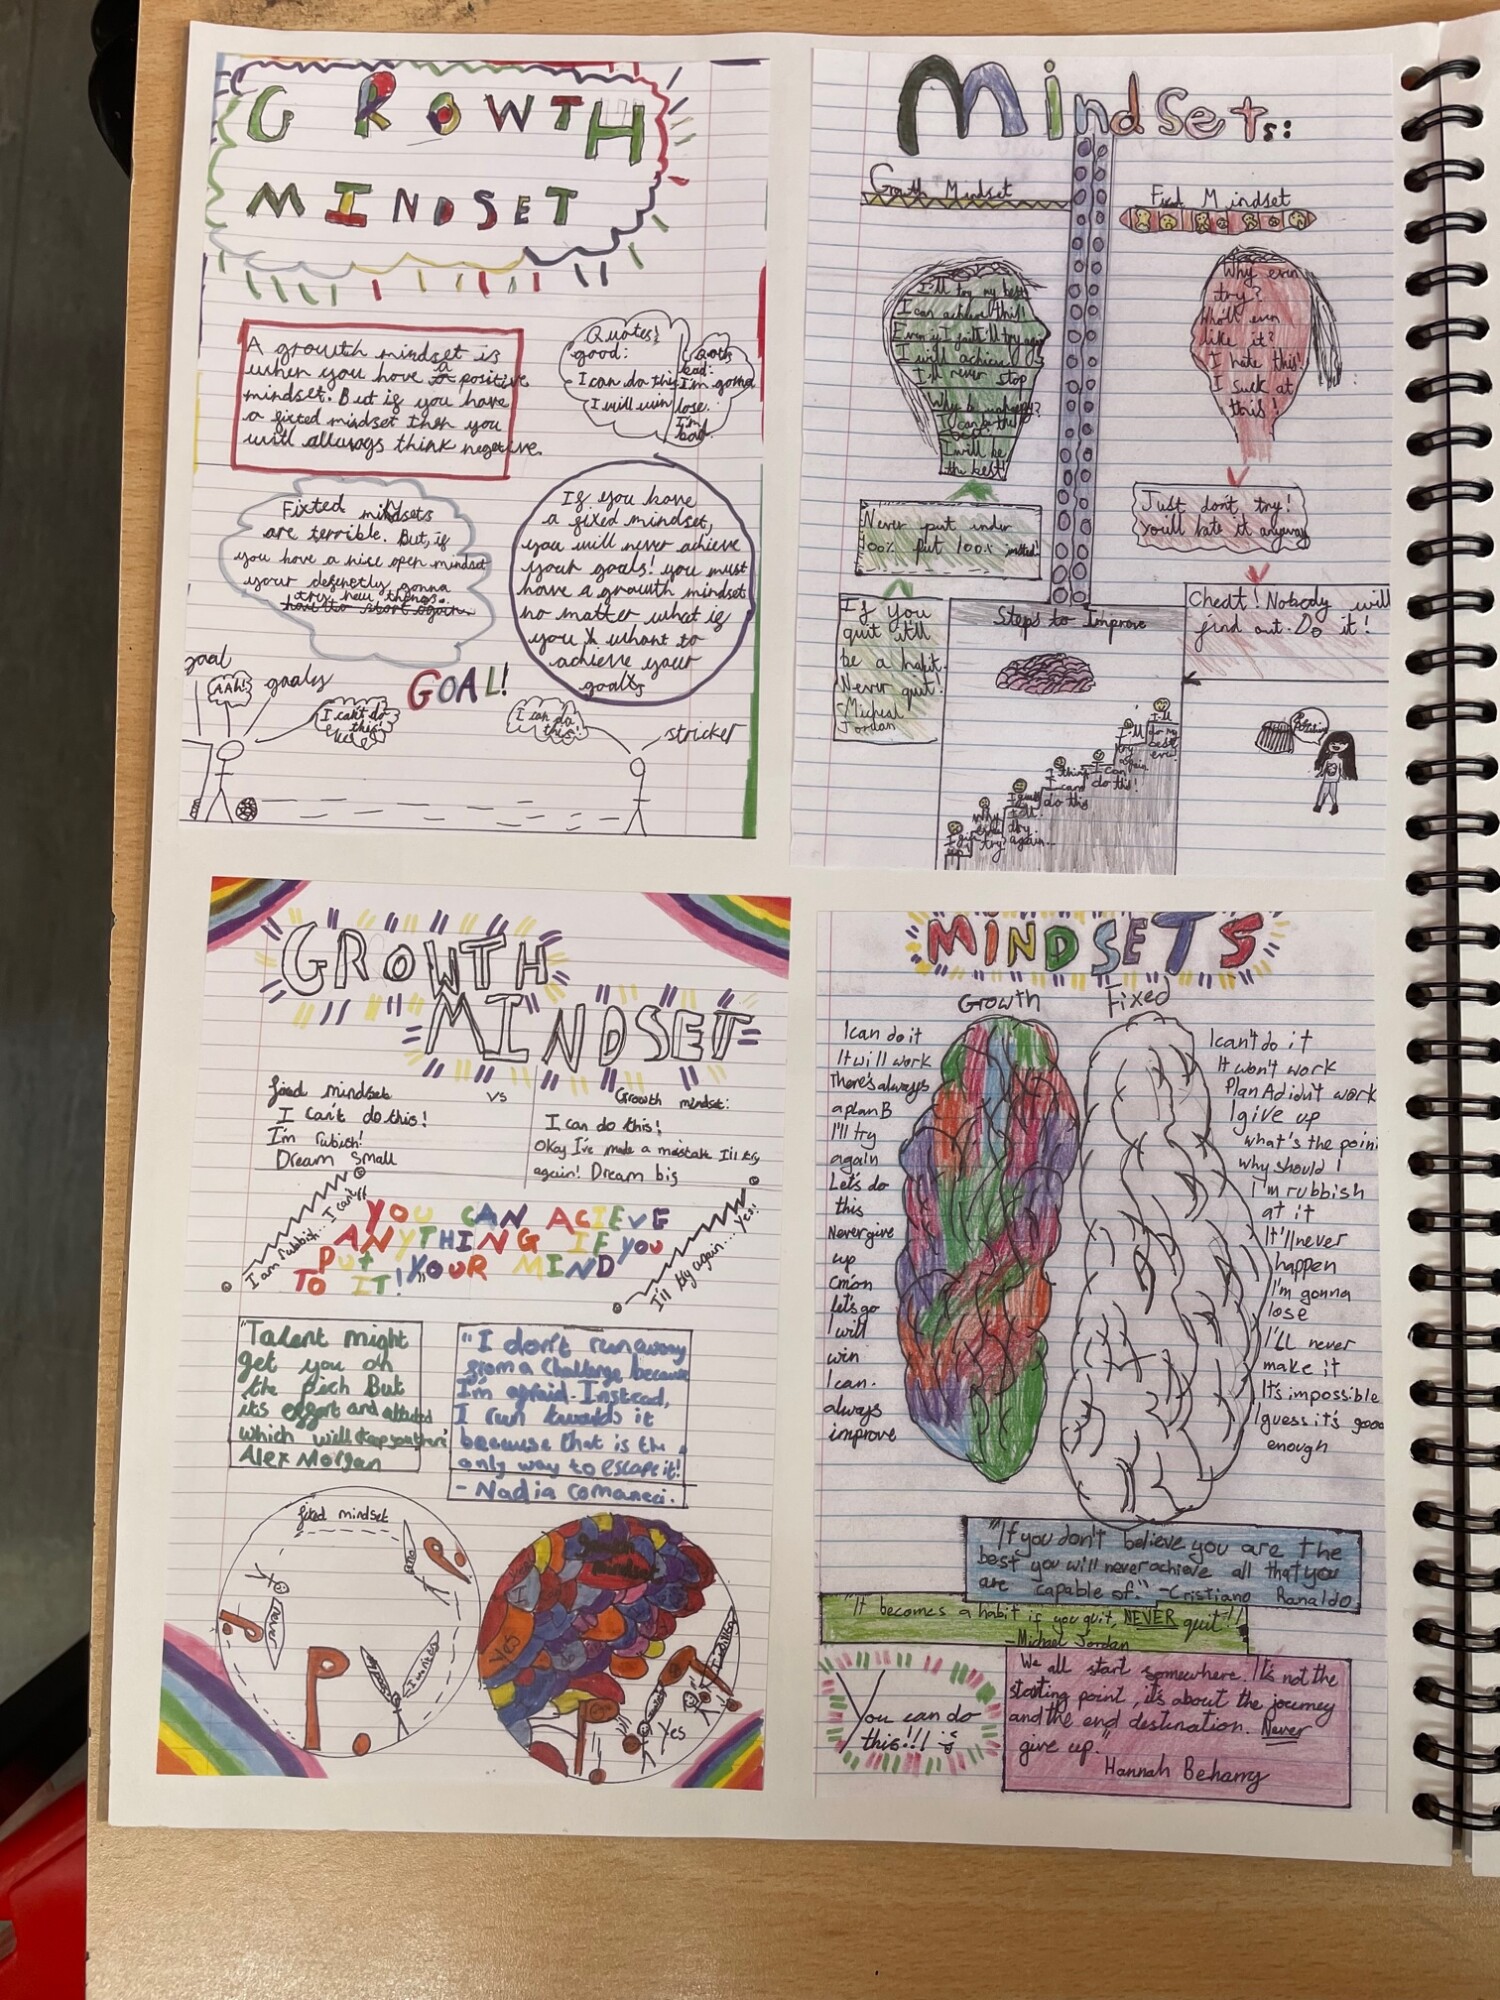 GROWTH
MINDSET
A growth mindset is
when you have a positive
mindset. But if you have
a fixted mindset then you
will allways think negetive.
Quotes:
good:
- I can do this
I will win
Qoots
bad:
I'm gonna
lose.
I'm
bad.
Fixted mindsets
are terrible. But, if
you have a nice open mindset
your defenetly gonna
try new things.
If you have
a fixed mindset,
you will never achieve
your goals! you must
have a growth mindset
no matter what if
you whant to
achieve your
goals
GOAL!
goal
AAh!
goaley
I can't do
this!
I can do
this!
stricker
Mindsets:
Growth Mindset
Fixed Mindset
I'll try my best
I can achieve this!
Even if I fail I'll try again
I will achieve
I'll never stop
Why be unhappy?
I can be the
best!
I will be
the best!
Why even
try?
Who'll even
like it?
I hate this!
I suck at
this!
Never put under
100% put 100%
Just don't try!
You'll hate it anyway
If you
quit it'll
be a habit.
Never quit.
-Micheal
Jordan
Steps to Improve
Cheat! Nobody will
find out. Do it!
I give
up!
Why
even
try?
I guess
I'll
try
again...
I think
I can
do this
I can
do this!
I'll
try
again
I'll
do my
best
ever!
GROWTH
MINDSET
fixed mindset
I can't do this!
I'm rubish!
Dream Small
vs
Growth mindset:
I can do this!
Okay I've made a mistake I'll try
again! Dream big
I am rubbish... I can't!
YOU CAN ACIEVE
ANYTHING IF YOU
PUT YOUR MIND
TO IT!
I'll try again... Yes!
"Talent might
get you on
the pich But
its effort and attitude
which will keep you there"
Alex Morgan
"I don't run away
from a challenge because
I'm afraid. Instead,
I run towards it
because that is the
only way to escape it!
- Nadia Comaneci.
fixed mindset
never
P.
Yes
Yes
MINDSETS
Growth
Fixed
I can do it
It will work
There's always
a plan B
I'll try
again
Let's do
this
Never give
up
C'mon
let's go
I will
win
I can.
always
improve
I can't do it
It won't work
Plan A didn't work
I give up
what's the poin
why should I
I'm rubbish
at it
It'll never
happen
I'm gonna
lose
I'LL never
make it
It's impossible
I guess it's good
enough
"If you don't believe you are the
best you will never achieve all that you
are capable of." -Cristiano Ranaldo
"It becomes a habit if you quit, NEVER quit!"
-Michael Jordan
You can do
this!!!
"We all start somewhere. It's not the
starting point, it's about the journey
and the end destination. Never
give up."
Hannah Beharry